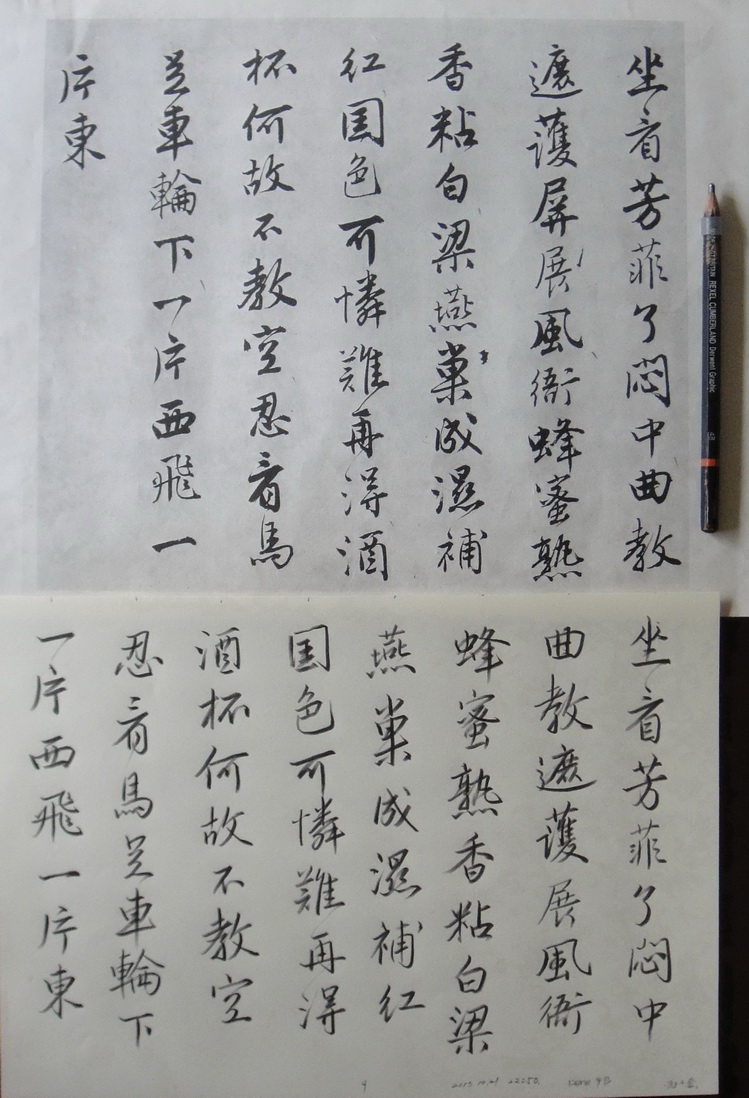 坐看芳菲了悶中曲教
遮護屏展風衙蜂蜜熟
香粘白梁燕巢成濕補
红国色可憐難再得酒
杯何故不教空忍看馬
足車輪下一片西飛一
片東
REXEL CUMBERLAND Derwent Graphic
坐看芳菲了悶中
曲教遮護展風衙
蜂蜜熟香粘白梁
燕巢成濕補红
国色可憐難再得
酒杯何故不教空
忍看馬足車輪下
一片西飛一片東